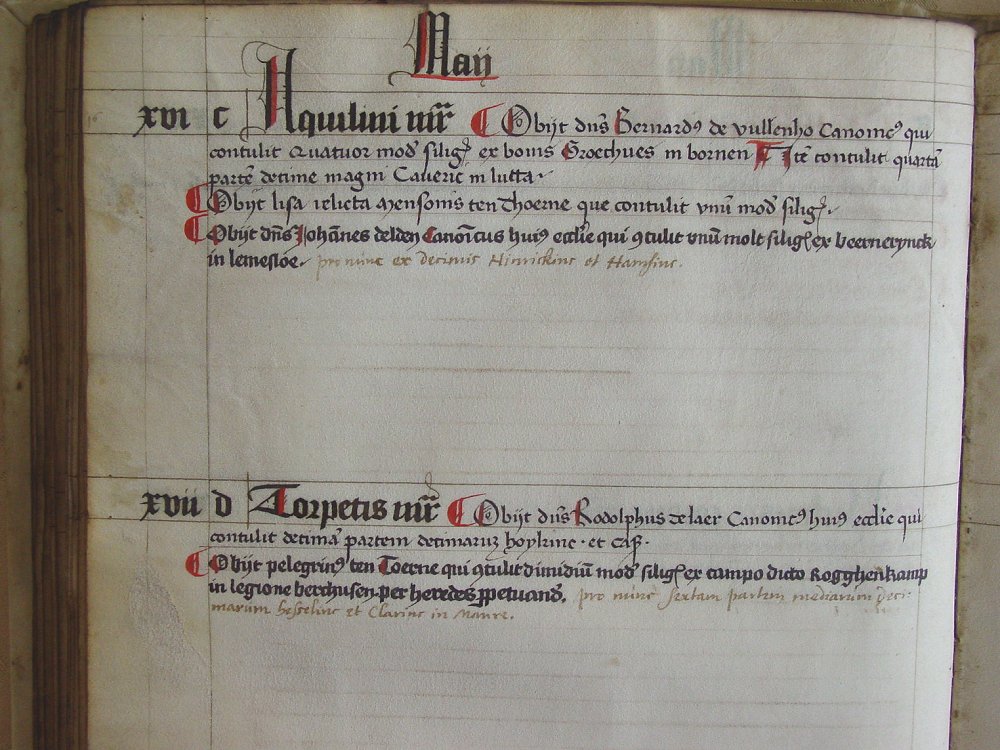 Maij
xvi c Aquilini mr̃ ¶ Obijt dn̄s Bernardꝰ de vullenho Canonicꝰ qui
contulit Quatuor mod̕ silig̕ ex bonis Groechues in bornen ¶ Itē contulit quartā
partē decime magni Caueric in lutta
¶ Obijt lisa relicta mensonis ten Thoerne que contulit vnū mod̕ silig̕
¶ Obijt dn̄s Johānes delden Canonicus huiꝰ ecclīe qui ꝯtulit vnūm molt silig̕ ex veernerynck
in lemesloe. pro nunc ex decimis Hinrickinc et Hamsinc.
xvii d Torpetis mr̃ ¶ Obijt dn̄s Rodolphus de laer Canonicꝰ huiꝰ ecclīe qui
contulit decimā partem decimaruʒ hoykinc · et cap̄ ·
¶ Obijt pelegrinꝰ ten Toerne qui ꝯtulit dimidiū mod̕ silig̕ ex campo dicto Rogghenkamp
in legione berchusen per heredes ꝑpetuand̕. pro nunc sextam partem mediarum deci-
marum hesselinc et Clarinc in Manre.